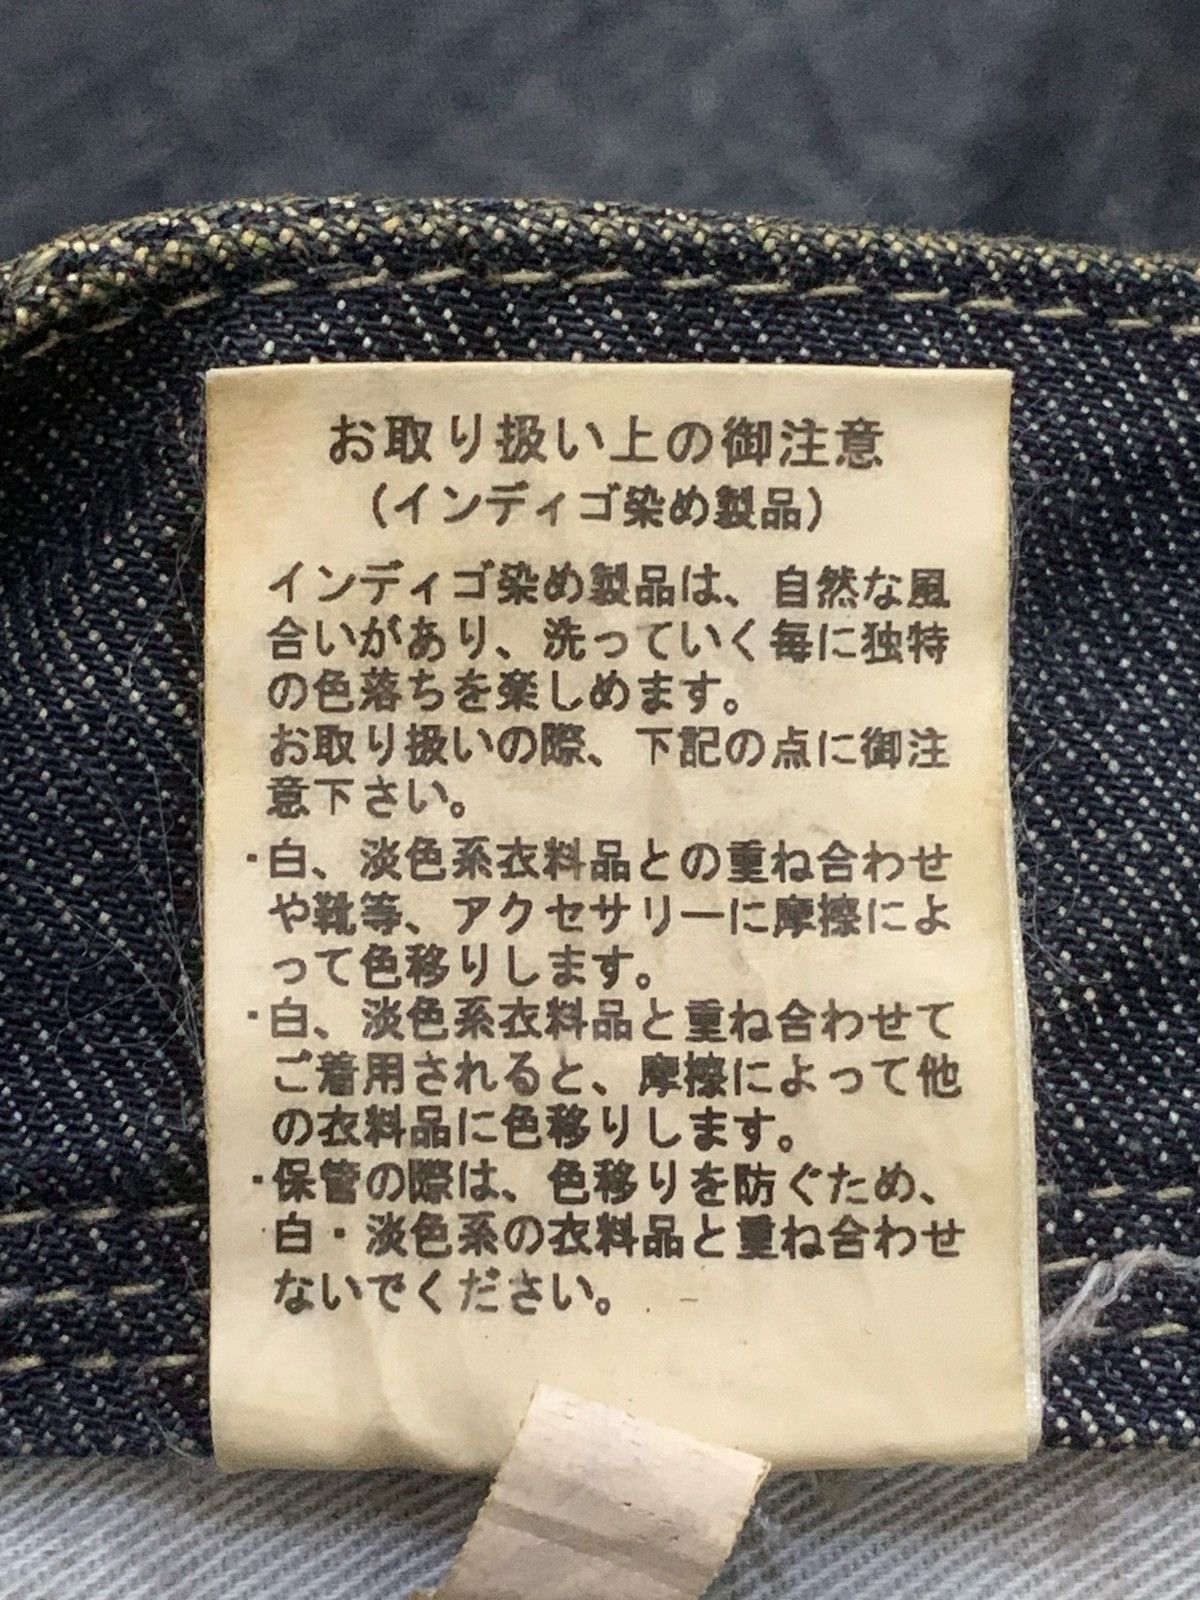 お取り扱い上の御注意
(インディゴ染め製品)
インディゴ染め製品は、自然な風
合いがあり、洗っていく毎に独特
の色落ちを楽しめます。
お取り扱いの際、下記の点に御注
意下さい。
・白、淡色系衣料品との重ね合わせ
や靴等、アクセサリーに摩擦によ
って色移りします。
・白、淡色系衣料品と重ね合わせて
ご着用されると、摩擦によって他
の衣料品に色移りします。
・保管の際は、色移りを防ぐため、
白・淡色系の衣料品と重ね合わせ
ないでください。